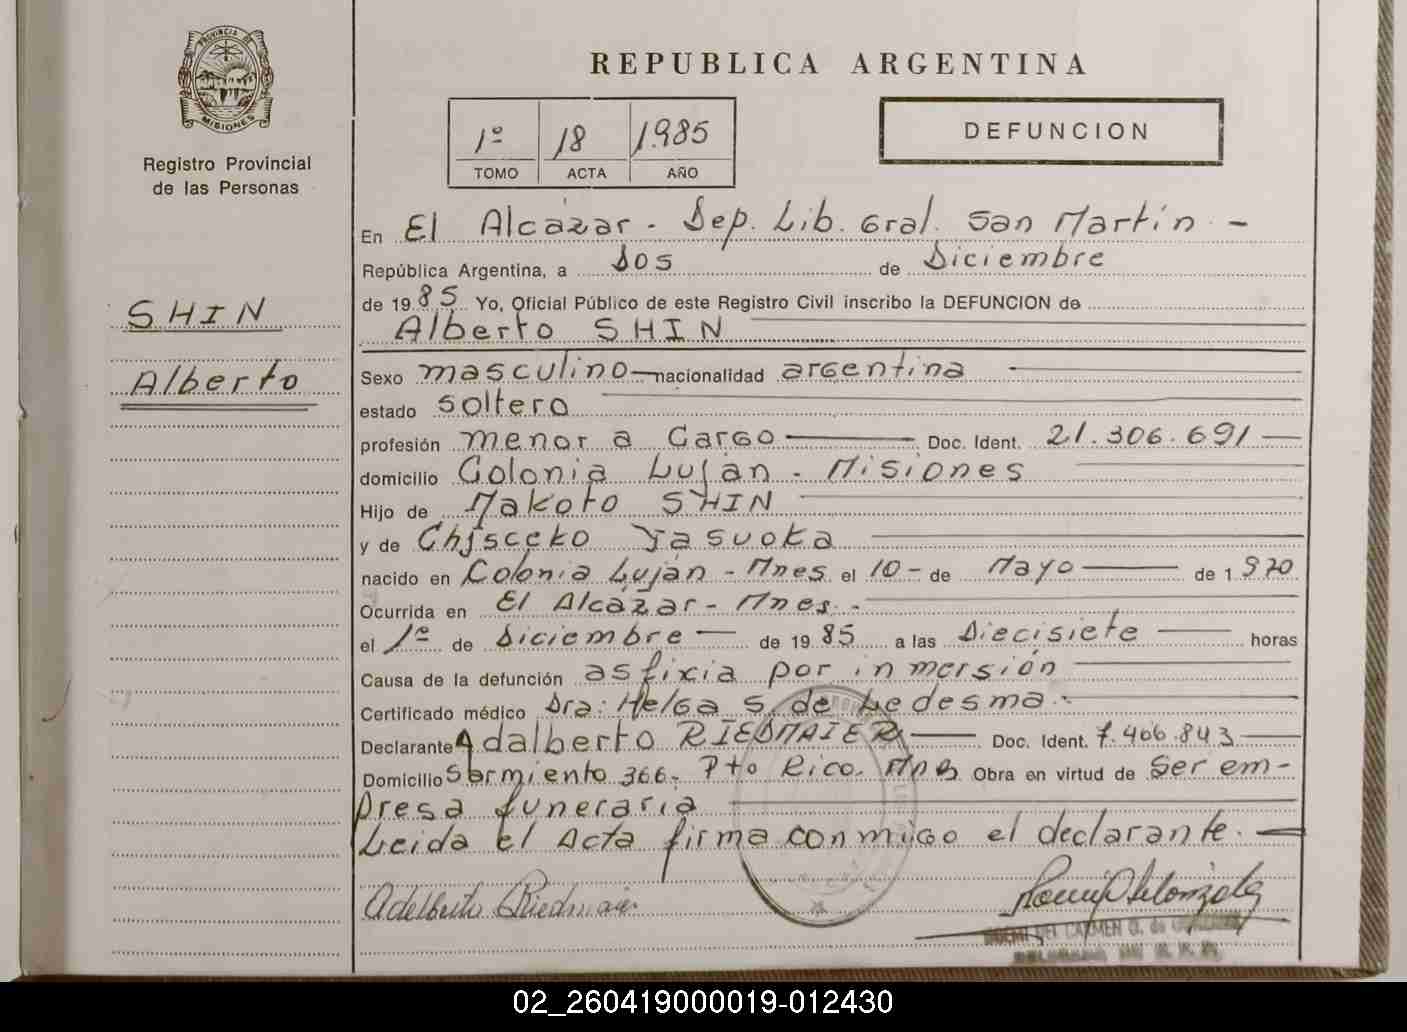 PROVINCIA DE
MISIONES
Registro Provincial
de las Personas
SHIN
Alberto
REPUBLICA ARGENTINA
1º 18 1.985
TOMO ACTA AÑO
DEFUNCION
En El Alcázar - Dep. Lib. Gral. San Martín. -
República Argentina, a Dos de Diciembre
de 1985 Yo, Oficial Público de este Registro Civil inscribo la DEFUNCION de
Alberto SHIN
Sexo masculino nacionalidad argentina
estado soltero
profesión menor a cargo Doc. Ident. 21.306.691
domicilio Colonia Luján - Misiones
Hijo de Makoto SHIN
y de Chisceko Yasuoka
nacido en Colonia Luján - Mnes el 10 - de Mayo de 1970
Ocurrida en El Alcázar - Mnes. -
el 1º de Diciembre de 1985 a las Diecisiete horas
Causa de la defunción asfixia por inmersión
Certificado médico Dra: Helga S. de Ledesma.
Declarante Adalberto RIEDMAIER Doc. Ident. 7.406.843
Domicilio Sarmiento 366 - Pto Rico. Mnes Obra en virtud de ser em-
presa funeraria
Leida el Acta firma conmigo el declarante.
Adelberto Riedmaier
DEL CARMEN G. de
02_260419000019-012430